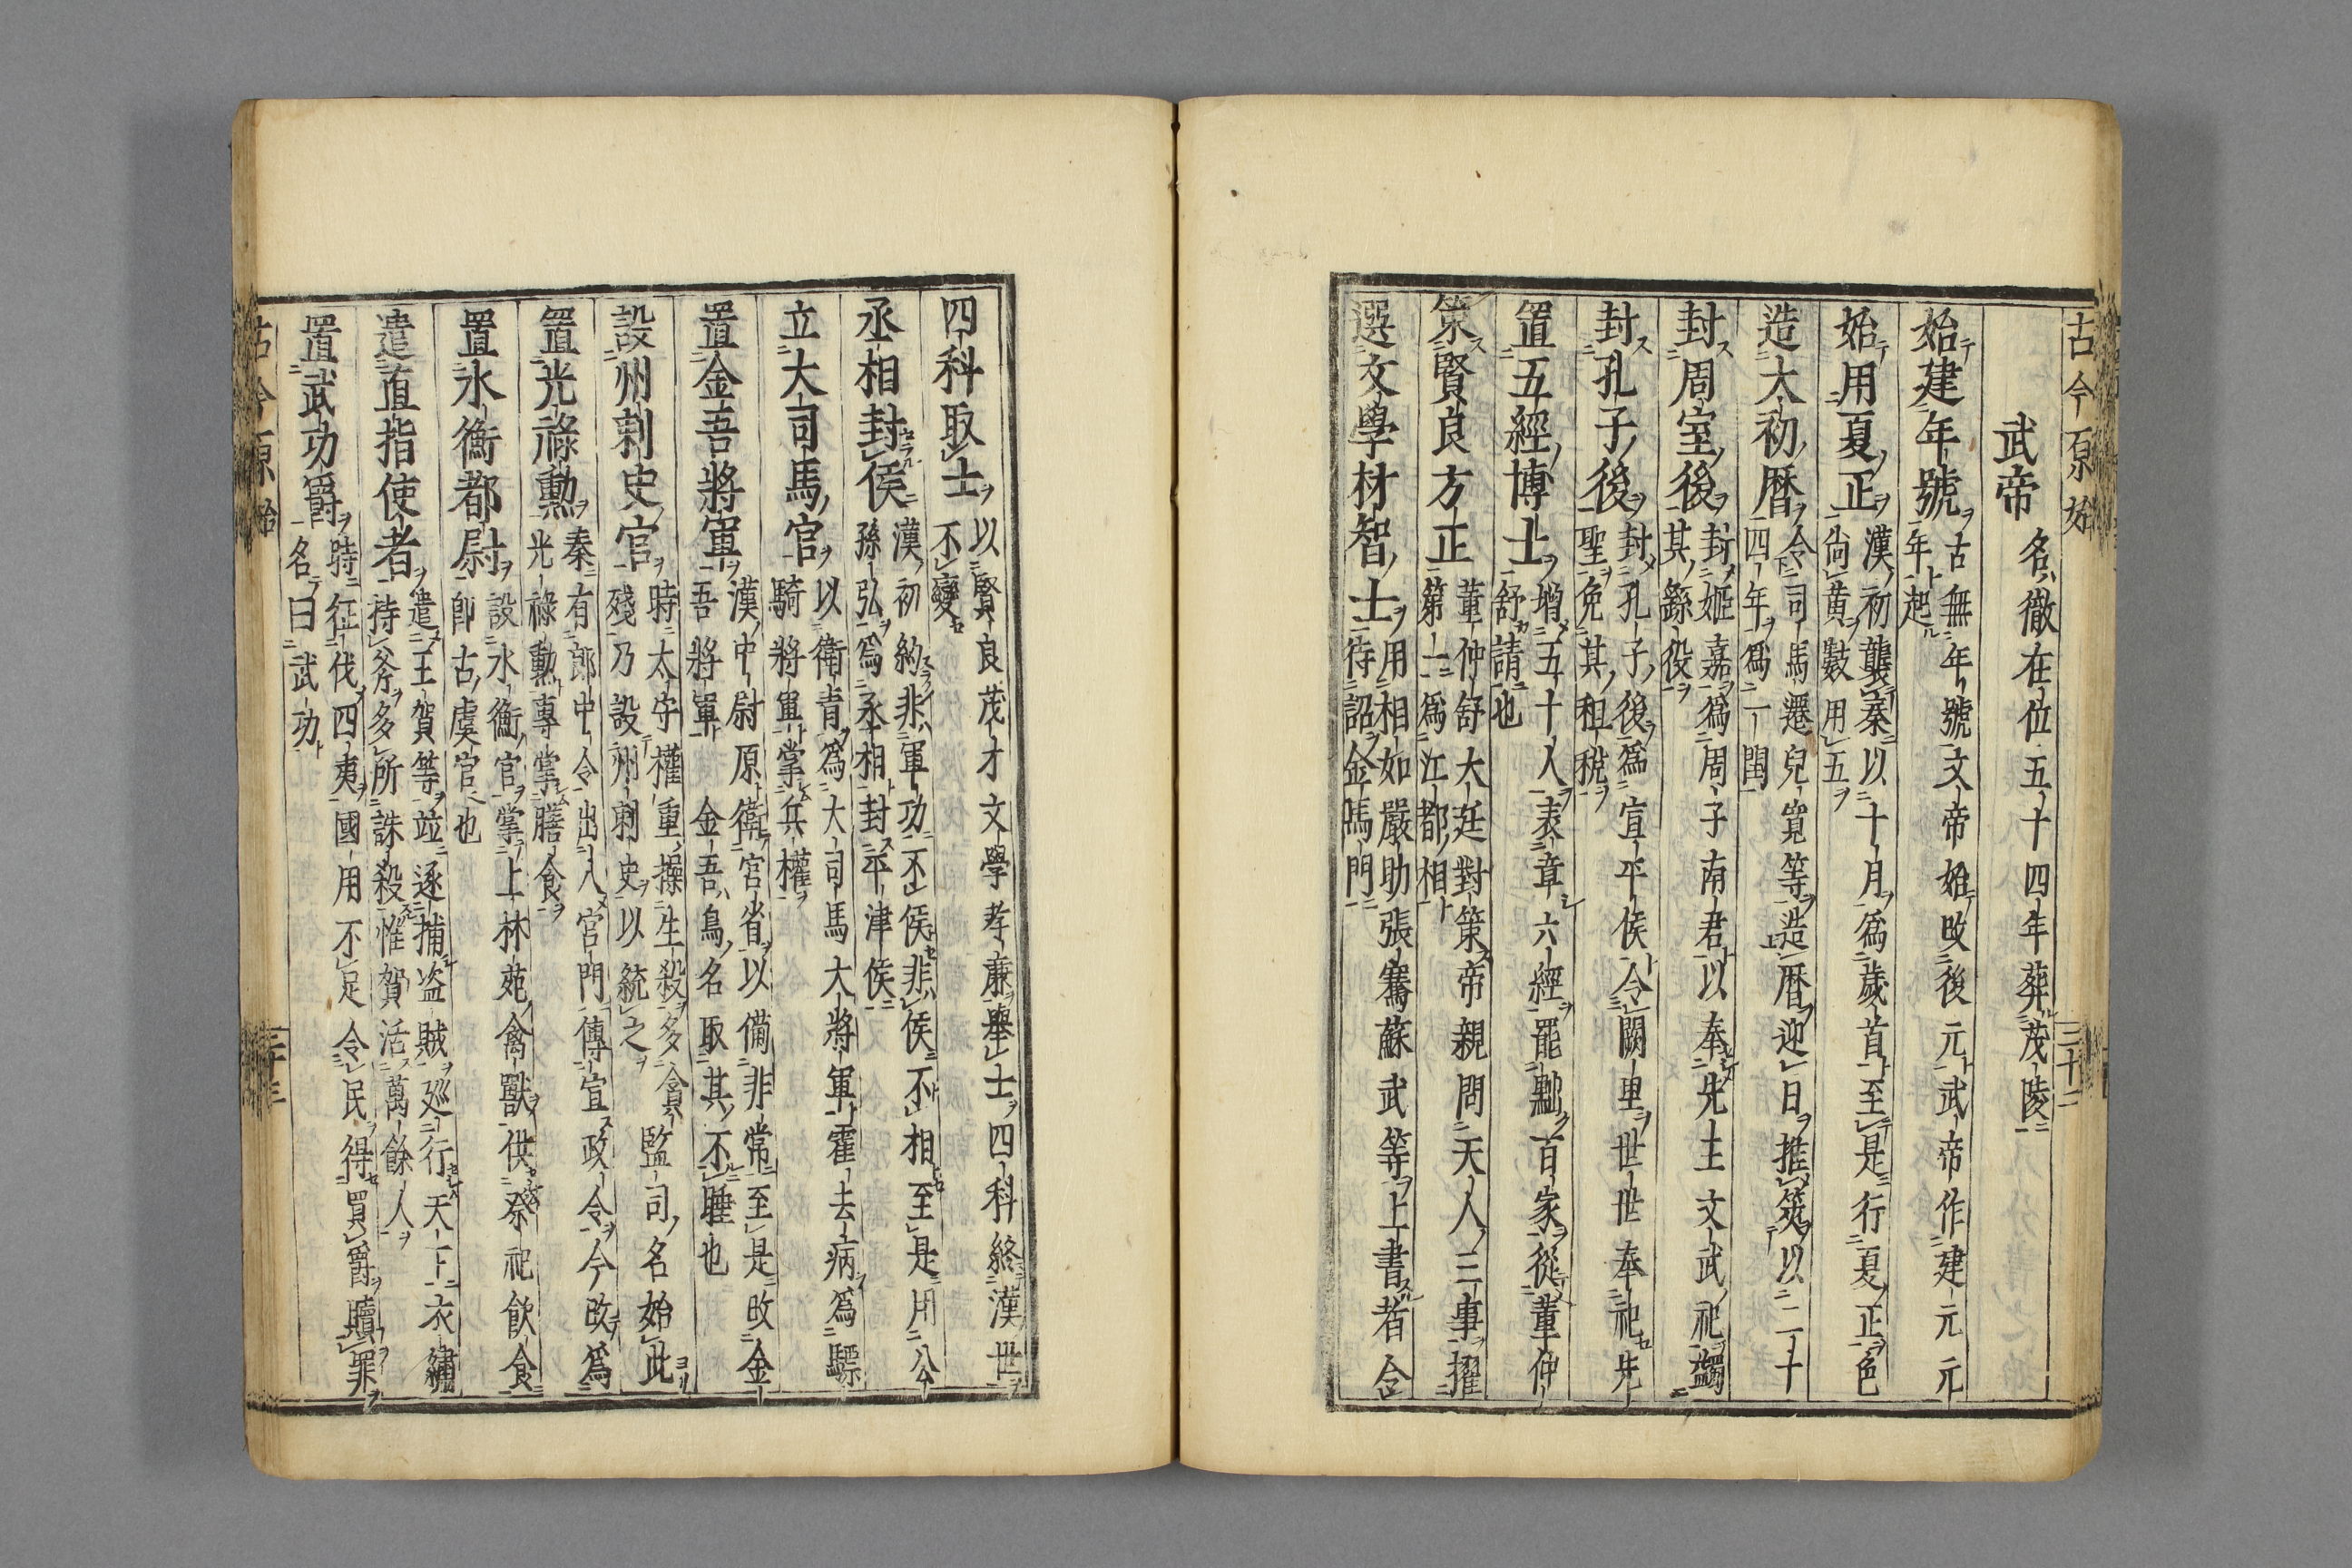 古今原始
三十二
武帝 名徹在位五十四年葬茂陵
始建年號 古無年號文帝始改後元武帝作建元元
年起
始用夏正 漢初襲秦以十月爲歲首至是行夏正色
尚黄數用五
造大初曆 令司馬遷兒寬等造曆迎日推筴以二十
四年爲一閏
封周室後 封姬嘉爲周子南君以奉先王文武祀蠲
其繇役
封孔子後 封孔子後爲宣平侯令闕里世世奉祀先
聖免其租稅
置五經博士 增五十人表章六經罷黜百家從董仲
舒請也
策賢良方正 董仲舒大廷對策帝親問天人三事擢
第一爲江都相
選文學材智士 用相如嚴助張騫蘇武等上書者令
待詔金馬門
四科取士 以賢良茂才文學孝廉舉士四科終漢世
不變
丞相封侯 漢初約非軍功不侯非侯不相至是用公
孫弘爲丞相封平津侯
立大司馬官 以衛青爲大司馬大將軍霍去病爲驃
騎將軍掌兵權
置金吾將軍 漢中尉原衛宮省以備非常至是改金
吾將軍金吾鳥名取其不睡也
設州刺史官 時太守權重操生殺多貪監司名始此
殘乃設州刺史以統之
置光祿勳 秦有郎中令出入宮門傳宣政令今改爲
光祿勳專掌膳食
置水衡都尉 設水衡官掌上林苑禽獸供祭祀飮食
卽古虞官也
遣直指使者 遣王賀等竝逐捕盗賊廵行天下衣繡
持斧多所誅殺惟賀活萬餘人
置武功爵 時征伐四夷國用不足令民得買爵贖罪
名曰武功
古今原始
三十三